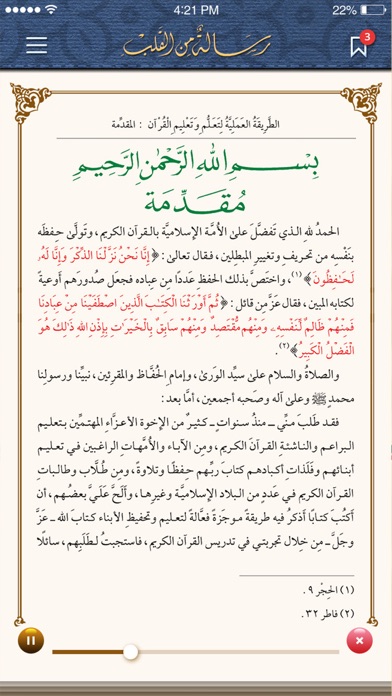 4:21 PM
22%
3
رسالة من القلب
الطَّرِيقَةُ العَمَلِيَّةُ لِتَعَلُّمِ وَتَعْلِيمِ القُرْآن : المقدِّمة
بِسْمِ اللَّهِ الرَّحْمَٰنِ الرَّحِيمِ
مُقَدِّمَة
الحمدُ للهِ الذي تَفضَّلَ علىٰ الأُمَّة الإسلاميَّة بالقرآن الكريم، وتَولَّىٰ حِفظَه
بنَفْسِه من تحريف وتغيير المبطِلين، فقال تعالىٰ: ﴿إِنَّا نَحْنُ نَزَّلْنَا الذِّكْرَ وَإِنَّا لَهُۥ
لَحَـٰفِظُونَ﴾(١)، واختَصَّ بذلك الحفظِ عَددًا مِن عِباده فجعل صُدورَهم أوعيةً
لكتابه المبين، فقال عَزَّ مِن قائل: ﴿ثُمَّ أَوْرَثْنَا الْكِتَـٰبَ الَّذِينَ اصْطَفَيْنَا مِنْ عِبَادِنَا
فَمِنْهُمْ ظَالِمٌ لِّنَفْسِهِۦ وَمِنْهُم مُّقْتَصِدٌ وَمِنْهُمْ سَابِقٌ بِالْخَيْرَٰتِ بِإِذْنِ اللَّهِ ذَٰلِكَ هُوَ
الْفَضْلُ الْكَبِيرُ﴾(٢).
والصلاةُ والسلام علىٰ سيِّد الوَرَىٰ، وإمامِ الحُفَّاظ والمقرِئين، نبيِّنا ورسولِنا
محمدٍ ﷺ وعلىٰ آله وصَحبه أجمعين، أمَّا بعد:
فقـد طَلَـبَ منِّي ــ منذُ سنواتٍ ــ كـثيرٌ من الإخوة الأعزَّاءِ المهتمِّين بتعليم
البراعم والناشئة القرآنَ الكريم، ومِن الآباء والأُمَّهات الراغبين في تعليم
أبنائهم وفَلَذاتِ أكبادهم كتابَ ربِّهم حِفظًا وتلاوةً، ومِن طُلَّاب وطالبات
القرآن الكريم في عَددٍ من البلاد الإسلاميَّة وغيرها، وألَحَّ عَلَيَّ بعضُهم، أن
أكتُبَ كتابًا أَذكرُ فيه طريقةً موجَزةً فعَّالةً لتعليم وتحفيظ الأبناء كتابَ الله ــ عَزَّ
وجلَّ ــ مِن خِلال تجربتي في تدريس القرآن الكريم، فاستجبتُ لطَلَبِهم، سائلًا
(١) الحِجْر ٩ .
(٢) فاطر ٣٢ .